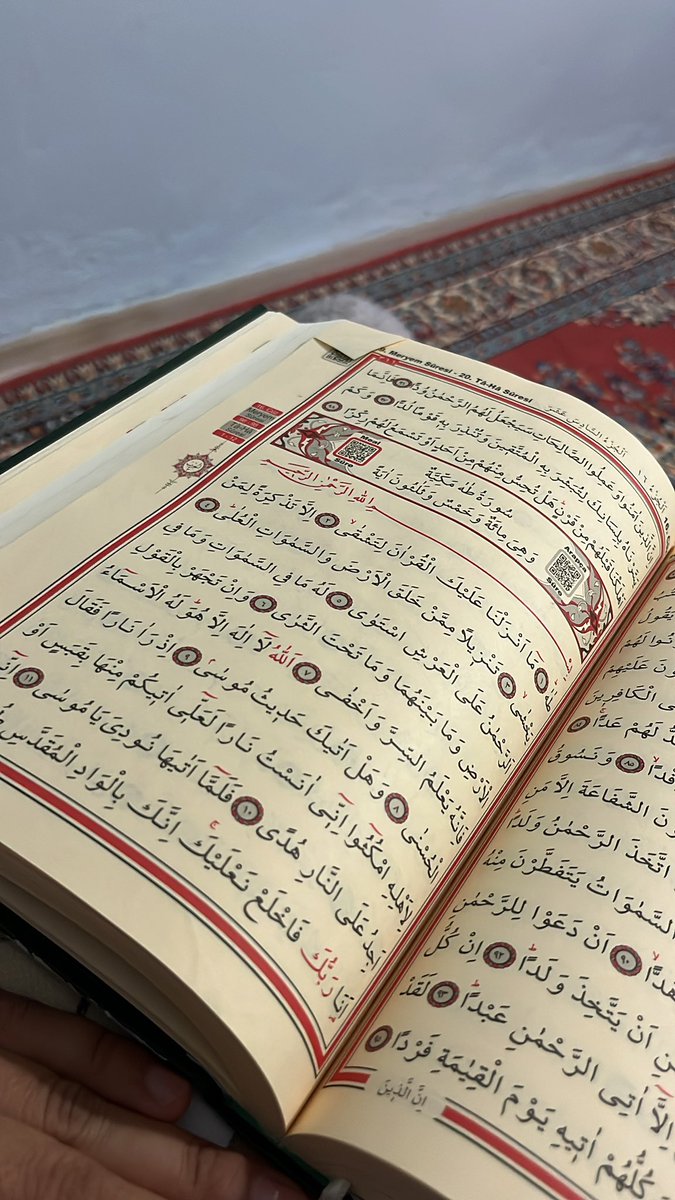 يَقُولُ
لَهُمْ
عَلَيْهِمْ
الْكَافِرِينَ
لَهُمْ عَدًّا ﴿٨٤﴾
﴿٨٥﴾ وَنَسُوقُ
الشَّفَاعَةَ اِلَّا مَنِ
اتَّخَذَ الرَّحْمٰنُ وَلَدًا
السَّمٰوَاتُ يَتَفَطَّرْنَ مِنْهُ
هَدًّا ﴿٩٠﴾ اَنْ دَعَوْا لِلرَّحْمٰنِ
اَنْ يَتَّخِذَ وَلَدًا ﴿٩٢﴾ اِنْ كُلُّ
اِلَّا اٰتِى الرَّحْمٰنِ عَبْدًا ﴿٩٣﴾ لَقَدْ
كُلُّهُمْ اٰتِيهِ يَوْمَ الْقِيٰمَةِ فَرْدًا ﴿٩٥﴾
اِنَّ الَّذِينَ
اَلْجُزْءُ السَّادِسَ عَشَرَ
Meryem Sûresi - 20. Tâ-Hâ Sûresi
الَّذِينَ اٰمَنُوا وَعَمِلُوا الصَّالِحَاتِ سَيَجْعَلُ لَهُمُ الرَّحْمٰنُ وُدًّا ﴿٩٦﴾ فَاِنَّمَا
يَسَّرْنَاهُ بِلِسَانِكَ لِتُبَشِّرَ بِهِ الْمُتَّقِينَ وَتُنْذِرَ بِهِ قَوْمًا لُدًّا ﴿٩٧﴾ وَكَمْ
اَهْلَكْنَا قَبْلَهُمْ مِنْ قَرْنٍ هَلْ تُحِسُّ مِنْهُمْ مِنْ اَحَدٍ اَوْ تَسْمَعُ لَهُمْ رِكْزًا ﴿٩٨﴾
Arapça
Sure
سُورَةُ طٰهٰ مَكِّيَّةٌ
وَهِىَ مِائَةٌ وَخَمْسٌ وَثَلٰثُونَ اٰيَةً
Meal
Sure
بِسْمِ اللّٰهِ الرَّحْمٰنِ الرَّحِيمِ
طٰهٰ ﴿١﴾ مَا اَنْزَلْنَا عَلَيْكَ الْقُرْاٰنَ لِتَشْقٰى ﴿٢﴾ اِلَّا تَذْكِرَةً لِمَنْ
يَخْشٰى ﴿٣﴾ تَنْزِيلًا مِمَّنْ خَلَقَ الْاَرْضَ وَالسَّمٰوَاتِ الْعُلٰى ﴿٤﴾
اَلرَّحْمٰنُ عَلَى الْعَرْشِ اسْتَوٰى ﴿٥﴾ لَهُ مَا فِى السَّمٰوَاتِ وَمَا فِى
الْاَرْضِ وَمَا بَيْنَهُمَا وَمَا تَحْتَ الثَّرٰى ﴿٦﴾ وَاِنْ تَجْهَرْ بِالْقَوْلِ
فَاِنَّهُ يَعْلَمُ السِّرَّ وَاَخْفٰى ﴿٧﴾ اَللّٰهُ لَا اِلٰهَ اِلَّا هُوَ لَهُ الْاَسْمَاءُ
الْحُسْنٰى ﴿٨﴾ وَهَلْ اَتٰيكَ حَدِيثُ مُوسٰى ﴿٩﴾ اِذْ رَاٰ نَارًا فَقَالَ
لِاَهْلِهِ امْكُثُوا اِنِّى اٰنَسْتُ نَارًا لَعَلِّى اٰتِيكُمْ مِنْهَا بِقَبَسٍ اَوْ
اَجِدُ عَلَى النَّارِ هُدًى ﴿١٠﴾ فَلَمَّا اَتٰيهَا نُودِىَ يَا مُوسٰى ﴿١١﴾ اِنِّى
اَنَا رَبُّكَ فَاخْلَعْ نَعْلَيْكَ اِنَّكَ بِالْوَادِ الْمُقَدَّسِ